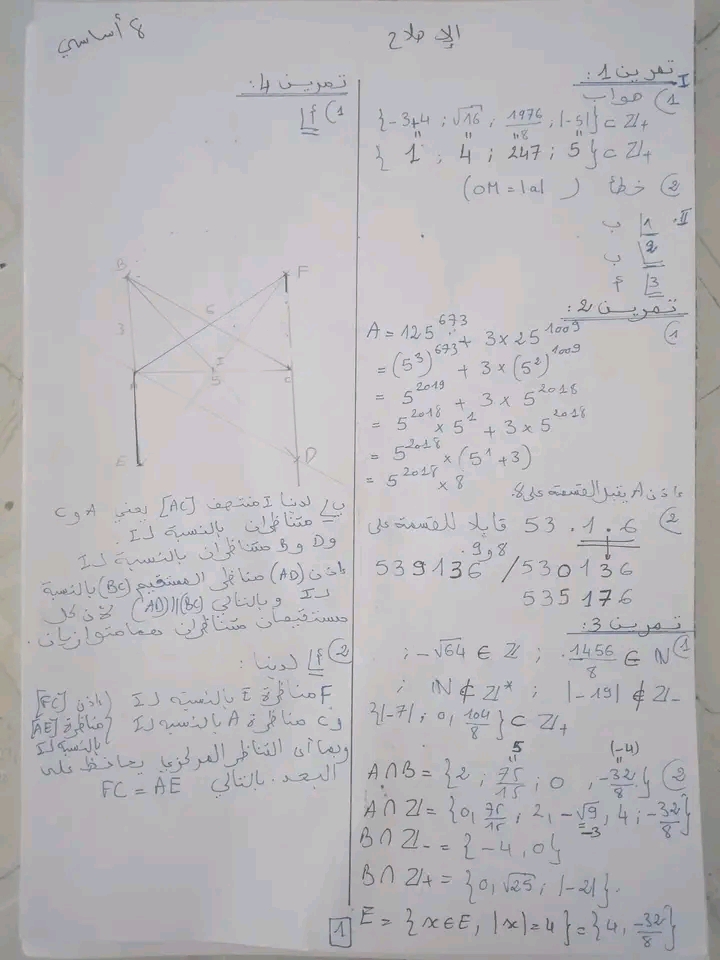 الإصلاح
8 أساسي
تمرين 1:
I
1) صواب
{-3+4 ; √16 ; 1976/8 ; |-5|} ⊂ ℤ+
{ 1 ; 4 ; 247 ; 5 } ⊂ ℤ+
2) خطأ (OM = |a|)
II.
1) ب
2) ب
3) أ
تمرين 2:
1) A = 125^673 + 3 × 25^1009
= (5^3)^673 + 3 × (5^2)^1009
= 5^2019 + 3 × 5^2018
= 5^2018 × 5^1 + 3 × 5^2018
= 5^2018 × (5^1 + 3)
= 5^2018 × 8
إذن A يقبل القسمة على 8.
2) 53.1.6 قابلا للقسمة على
8 و 9.
539136 / 530136
535176
تمرين 3:
1) 1456/8 ∈ ℕ ; -√64 ∈ ℤ ;
|-19| ∉ ℤ- ; ℕ ⊄ ℤ* ;
{|-7| ; 0 ; 104/8} ⊂ ℤ+
5 (-4)
2) A∩B = {2 ; 75/15 ; 0 ; -32/8}
A∩ℤ = {0, 75/15, 2, -√9, 4 ; -32/8}
-3
B∩ℤ- = {-4, 0}
B∩ℤ+ = {0, √25 ; |-2|}.
E = {x∈E, |x|=4} = {4, -32/8}
1
تمرين 4:
1) أ
B F
6
3 I
A 5 C
E D
ب) لدينا I منتصف [AC] يعني A و C
متناظران بالنسبة لـ I
و D و B متناظران بالنسبة لـ I
إذن (AD) مناظر المستقيم (BC) بالنسبة
لـ I وبالتالي (BC)//(AD) لأن كل
مستقيمان متناظران هما متوازيان.
2) أ) لدينا:
F مناظرة E بالنسبة لـ I إذن [FC]
و C مناظرة A بالنسبة لـ I مناظرة [AE]
بالنسبة لـ I
وبما أن التناظر المركزي يحافظ على
البعد. بالتالي FC = AE